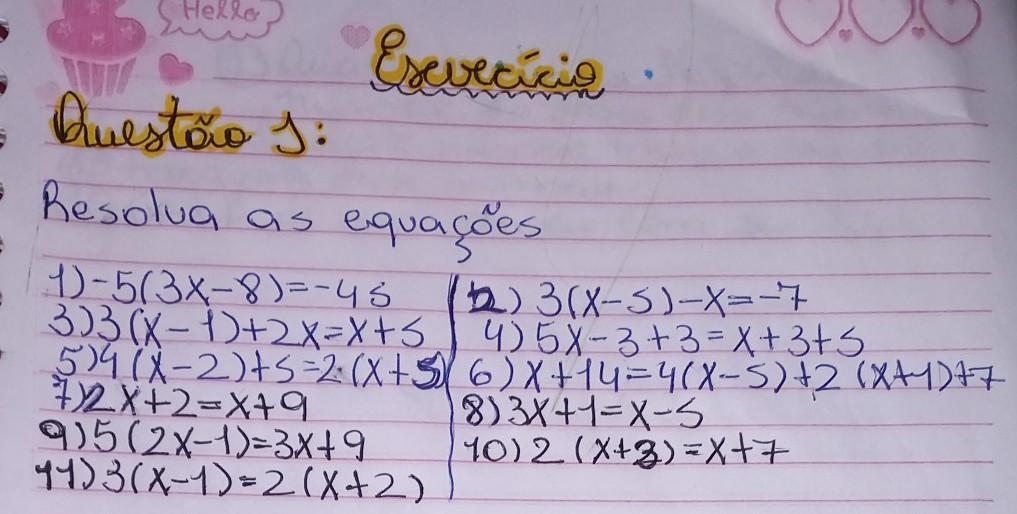 Hello
Exercício
Questão 1:
Resolva as equações
1) -5(3x-8)=-45
2) 3(x-5)-x=-7
3) 3(x-1)+2x=x+5
4) 5x-3+3=x+3+5
5) 4(x-2)+5=2·(x+5)
6) x+14=4(x-5)+2(x+1)+7
7) 2x+2=x+9
8) 3x+1=x-5
9) 5(2x-1)=3x+9
10) 2(x+3)=x+7
11) 3(x-1)=2(x+2)